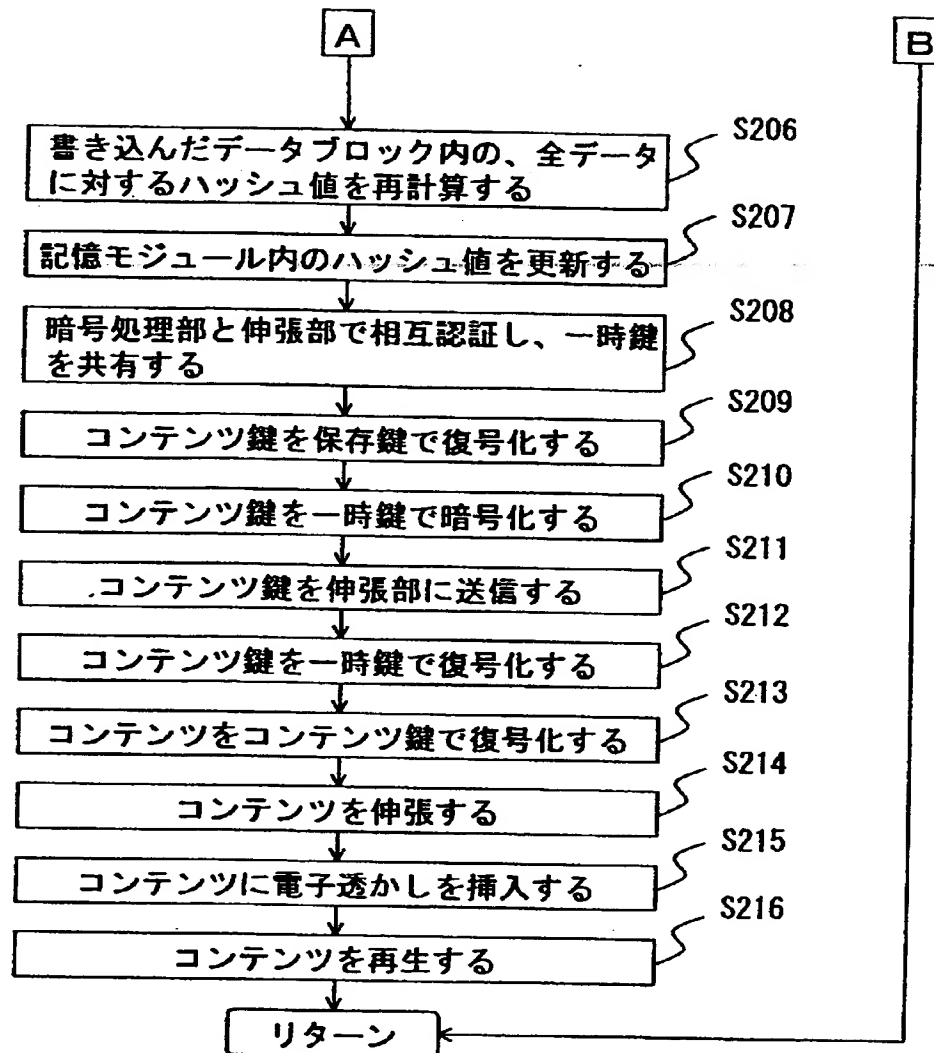 A
B
S206
書き込んだデータブロック内の、全データ
に対するハッシュ値を再計算する
S207
記憶モジュール内のハッシュ値を更新する
S208
暗号処理部と伸張部で相互認証し、一時鍵
を共有する
S209
コンテンツ鍵を保存鍵で復号化する
S210
コンテンツ鍵を一時鍵で暗号化する
S211
コンテンツ鍵を伸張部に送信する
S212
コンテンツ鍵を一時鍵で復号化する
S213
コンテンツをコンテンツ鍵で復号化する
S214
コンテンツを伸張する
S215
コンテンツに電子透かしを挿入する
S216
コンテンツを再生する
リターン